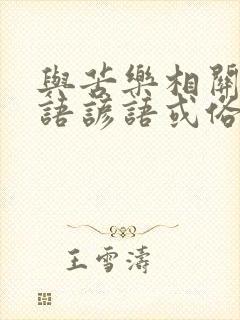 與苦樂相關
語諺語或俗
王雪濤